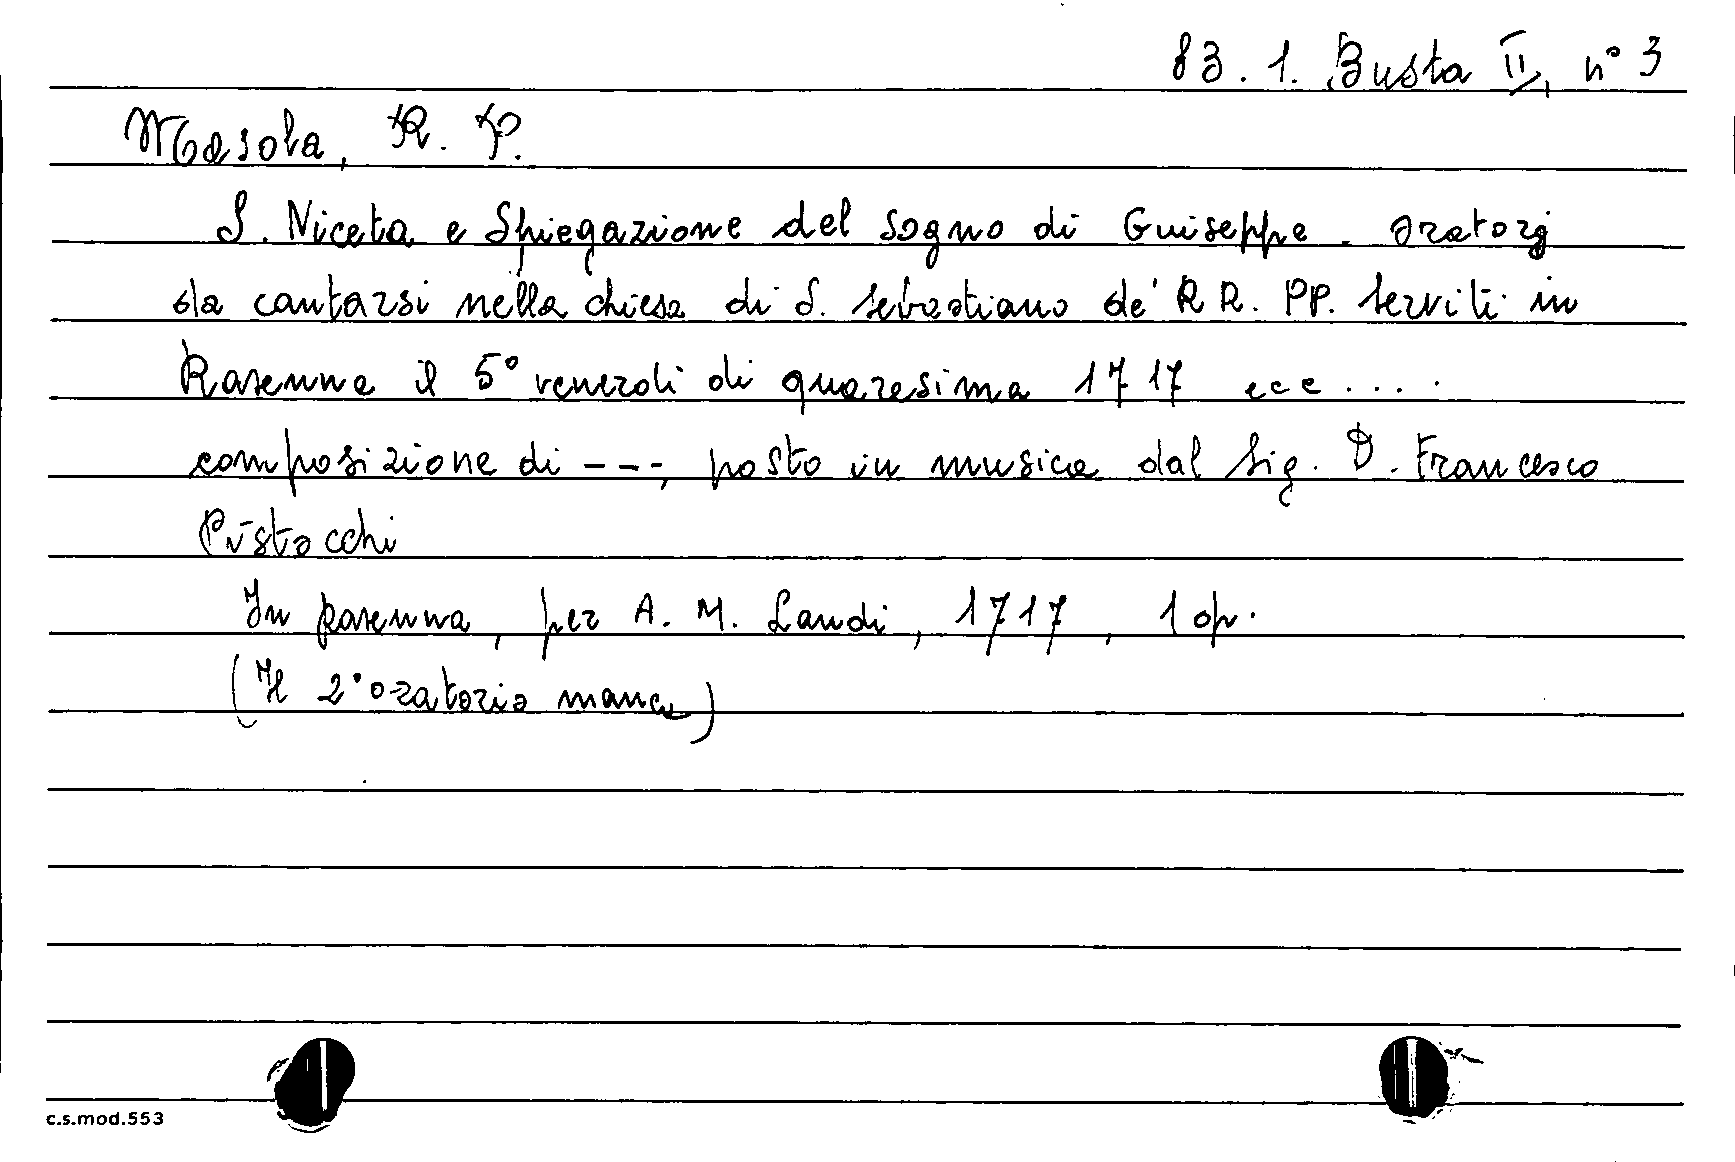 83.1. Busta II, n° 3
Masola, R. P.
S. Niceta e Spiegazione del sogno di Guiseppe. Oratorj
da cantarsi nella chiesa di S. Sebastiano de' RR. PP. Serviti in
Ravenna il 5° venerdi di quaresima 1717 ecc ....
composizione di ---, posto in musica dal Sig. D. Francesco
Pistocchi
In Ravenna, per A. M. Landi, 1717, 1 op.
(Il 2° oratorio manca)
c.s.mod.553